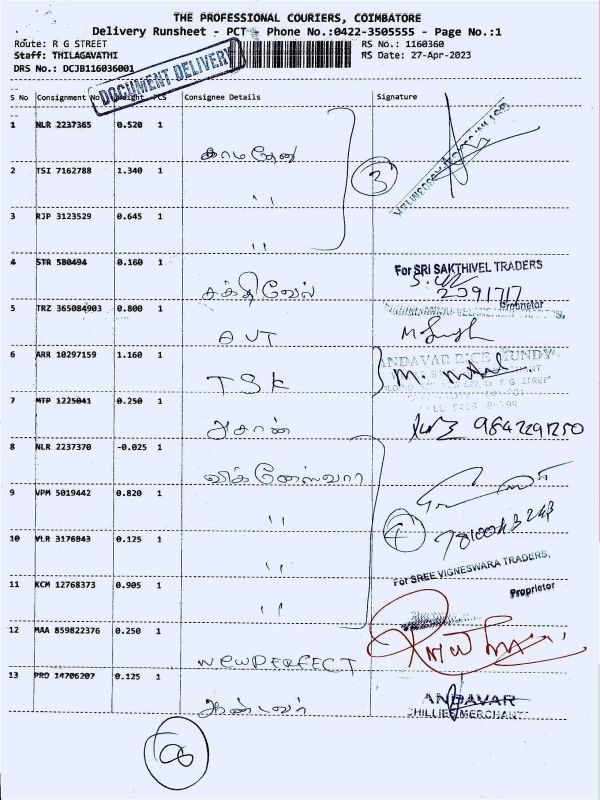 THE PROFESSIONAL COURIERS, COIMBATORE
Delivery Runsheet - PCT - Phone No.:0422-3505555 - Page No.:1
Route: R G STREET RS No.: 1160360
Staff: THILAGAVATHI RS Date: 27-Apr-2023
DRS No.: DCJB116036001
DOCUMENT DELIVERY
S No Consignment No Weight PCS Consignee Details Signature
1 NLR 2237365 0.520 1
காமதேனு
3
2 TSI 7162788 1.340 1
"
3 RJP 3123529 0.645 1
"
4 STR 580494 0.160 1 For SRI SAKTHIVEL TRADERS
சக்திவேல் 2391717
Proprietor
5 TRZ 365084903 0.800 1
AVT
6 ARR 10297159 1.160 1 ANDAVAR RICE MUNDY
TSK
R G STREET
7 MTP 1225041 0.250 1
அசான்
8 NLR 2237370 -0.025 1
விக்னேஸ்வரா
9 VPM 5019442 0.820 1
"
4
10 VLR 3176843 0.125 1
"
For SREE VIGNESWARA TRADERS,
11 KCM 12768373 0.905 1 Proprietor
"
12 MAA 859822376 0.250 1
NEWPERFECT
13 PRO 14706207 0.125 1
ஆண்டவர் ANDAVAR
CHILLIES MERCHANT